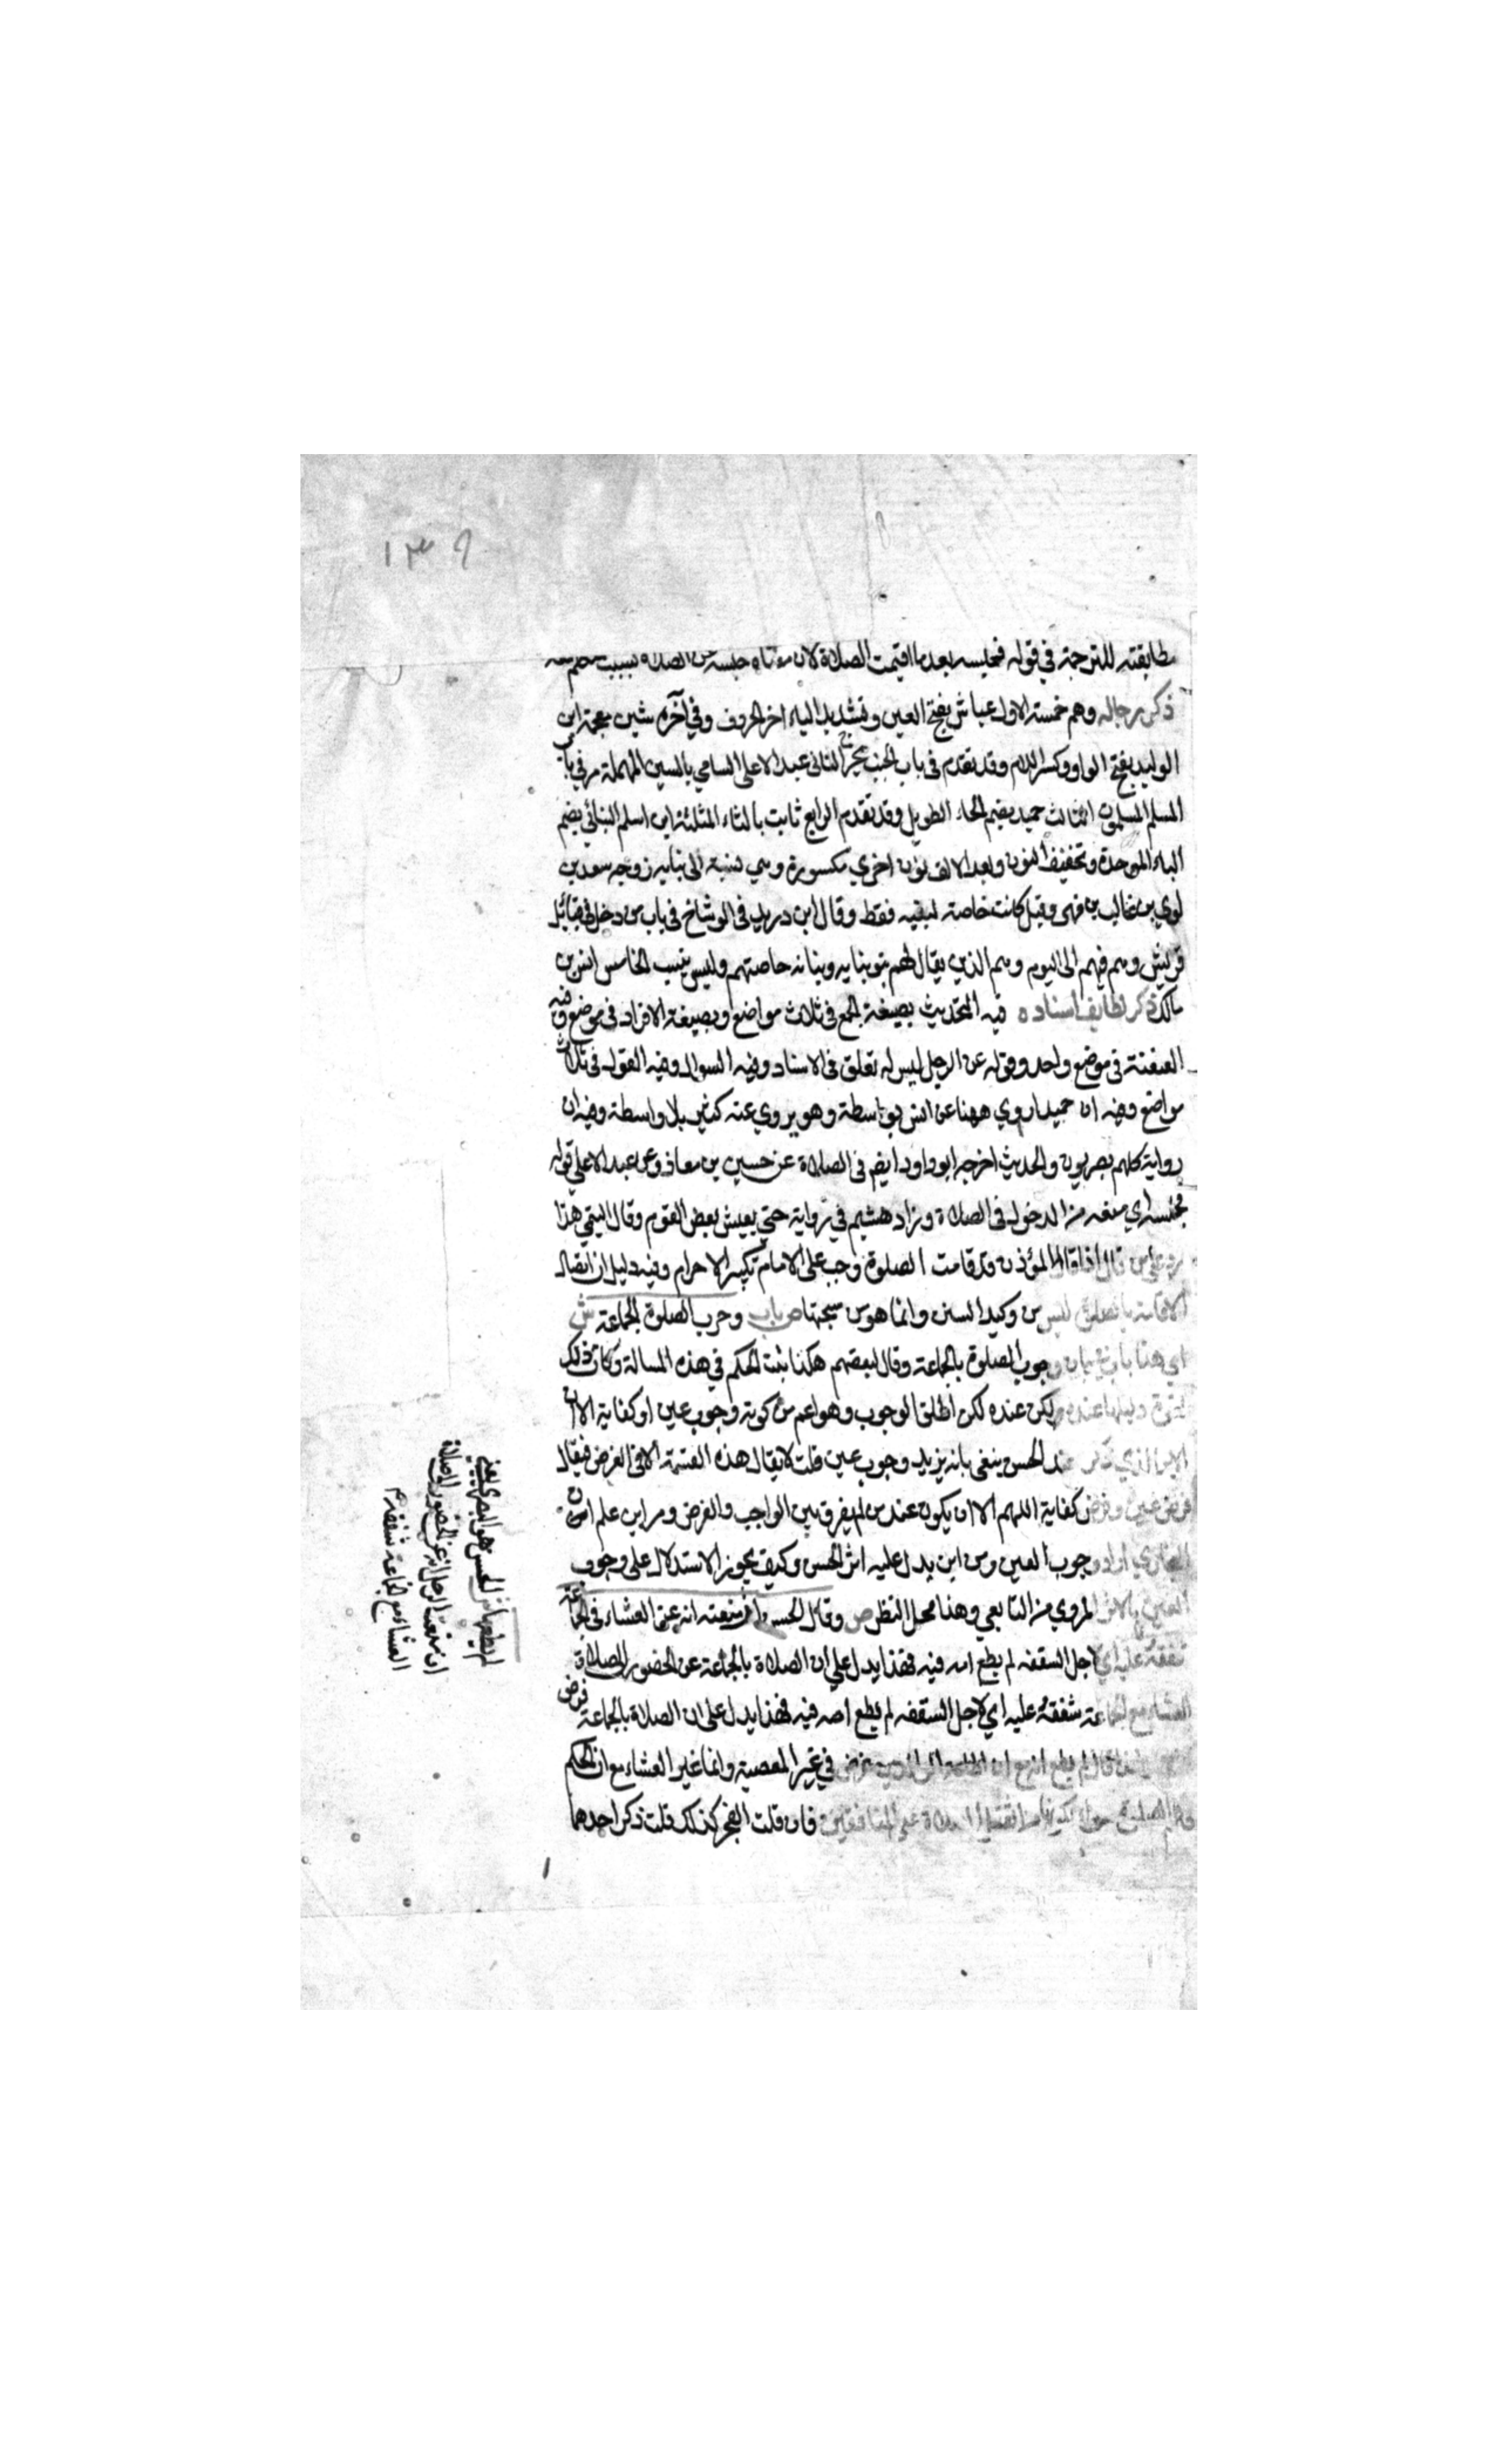 ١٣٩
مطابقته للترجمة في قوله فحبسه بعد ما اقيمت الصلاة لان معناه حبسه عن الصلاة بسبب
ذكر رجاله وهم خمسة الاول عياش بفتح العين وتشديد الياء اخر الحروف وفي آخره شين معجمة ابن
الوليد بفتح الواو وكسر اللام وقد تقدم في باب الجنب يخرج الثاني عبد الاعلى السامي بالسين المهملة مر في باب
المسلم المسلمون الثالث حميد بضم الحاء الطويل وقد تقدم الرابع ثابت بالثاء المثلثة ابن اسلم البناني بضم
الباء الموحدة وتخفيف النون وبعد الالف نون اخري مكسورة وهي نسبة الى بنايه زوجه سعد بن
لوي بن غالب بن فهر وقيل كانت خاصة لبنيه فقط وقال ابن دريد في الوشاح في باب من دخل في قبائل
قريش وهم فيهم الى اليوم وهم الذين يقال لهم بنو بنايه وبنانه حاصنتهم وليس بنسب الخامس انس بن
مالك ذكر لطايف اسناده فيه التحديث بصيغة الجمع في ثلاث مواضع وبصيغة الافراد في موضع وفيه
العنعنة في موضع واحد وقوله عن الرجل ليس له تعلق في الاسناد وفيه السوال وفيه القول في ثلاث
مواضع وفيه ان حميدا روي ههنا عن انس بواسطة وهو يروي عنه كثير بلا واسطة وفيه ان
رواية كلهم بصريون والحديث اخرجه ابو داود ايضم في الصلاة عن حسين بن معاذ وعن عبد الاعلي قوله
فحبسه اي منعه من الدخول في الصلاة وزاد هشيم في رواية حتي يعيش بعض القوم وقال التيمي هذا
رد علي من قال اذا قال المؤذن قد قامت الصلوة وجب على الامام تكبير الاحرام وفيه دليل ان اتصال
الاقامة بالصلوة ليس من وكيد السنن وانما هو من سجتها ص باب وجرب الصلوة الجماعة ش
اي هذا باب في بيان وجوب الصلوة بالجماعة وقال بعضهم هكذا بثت الحكم في هذه المسالة وكان ذلك
لقوة دليلها عنده لكن عنده لكن اطلق الوجوب وهو اعم من كونه وجوب عين او كفاية الا ان
الاثر الذي ذكره عند الحسن ينفي بانه يزيد وجوب عين قلت لا يقال هذه القسمة الا في الفرض فيقال
فرض عين وفرض كفاية اللهم الا ان يكون عند من لم يفرق بين الواجب والفرض ومن اين علم ان
البخاري اراد وجوب العين ومن اين يدل عليه اثر الحسن وكيف يجوز الاستدلال على وجوب
العين بالاثر المروي من التابعي وهذا محل النظر ص وقال الحسن ان منعته امه عن العشاء في الجماعة
شفقة عليه اي اجل السقفه لم يطع امه فيه فهذا يدل علي ان الصلاة بالجماعة عن الحضور الى الصلاة
العشاء مع الجماعة شفقة عليه اي لاجل السقفه لم يطع امه فيه فهذا يدل على ان الصلاة بالجماعة فرض
في غير المعصية وانما غير العشاء مع ان الحكم
علي المنافقين فان قلت الفجر كذلك قلت ذكر احدهما
لم يطعها ش الحسن هو البصري يعني
ان منعت الرجل امه عن الحضور الى صلاة
العشاء مع الجماعة شفقة م